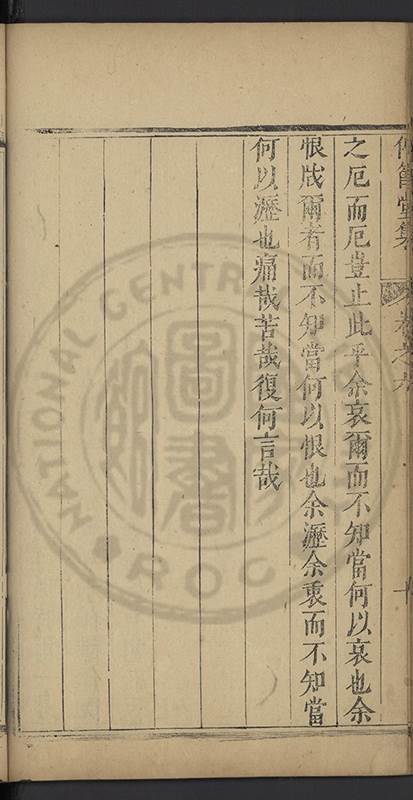 之厄而厄豈止此乎余哀爾而不知當何以哀也余
恨戕爾者而不知當何以恨也余瀝余衷而不知當
何以瀝也痛哉苦哉復何言哉
堂集
卷之六
NATIONAL CENTRAL
ROC
圖書